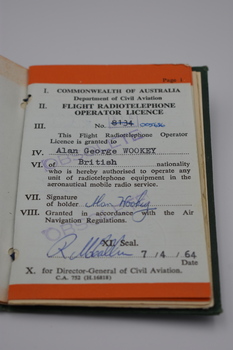 Page 1
I. COMMONWEALTH OF AUSTRALIA
Department of Civil Aviation
II. FLIGHT RADIOTELEPHONE
OPERATOR LICENCE
III. No. 8134
This Flight Radiotelephone Operator
Licence is granted to
IV. Alan George WOOKEY
VI. of British nationality
who is hereby authorised to operate any
unit of radiotelephone equipment in the
aeronautical mobile radio service.
VII. Signature
of holder Alan Wookey
VIII. Granted in accordance with the Air
Navigation Regulations.
XI. Seal.
7 / 4 / 64
Date
X. for Director-General of Civil Aviation.
C.A. 752